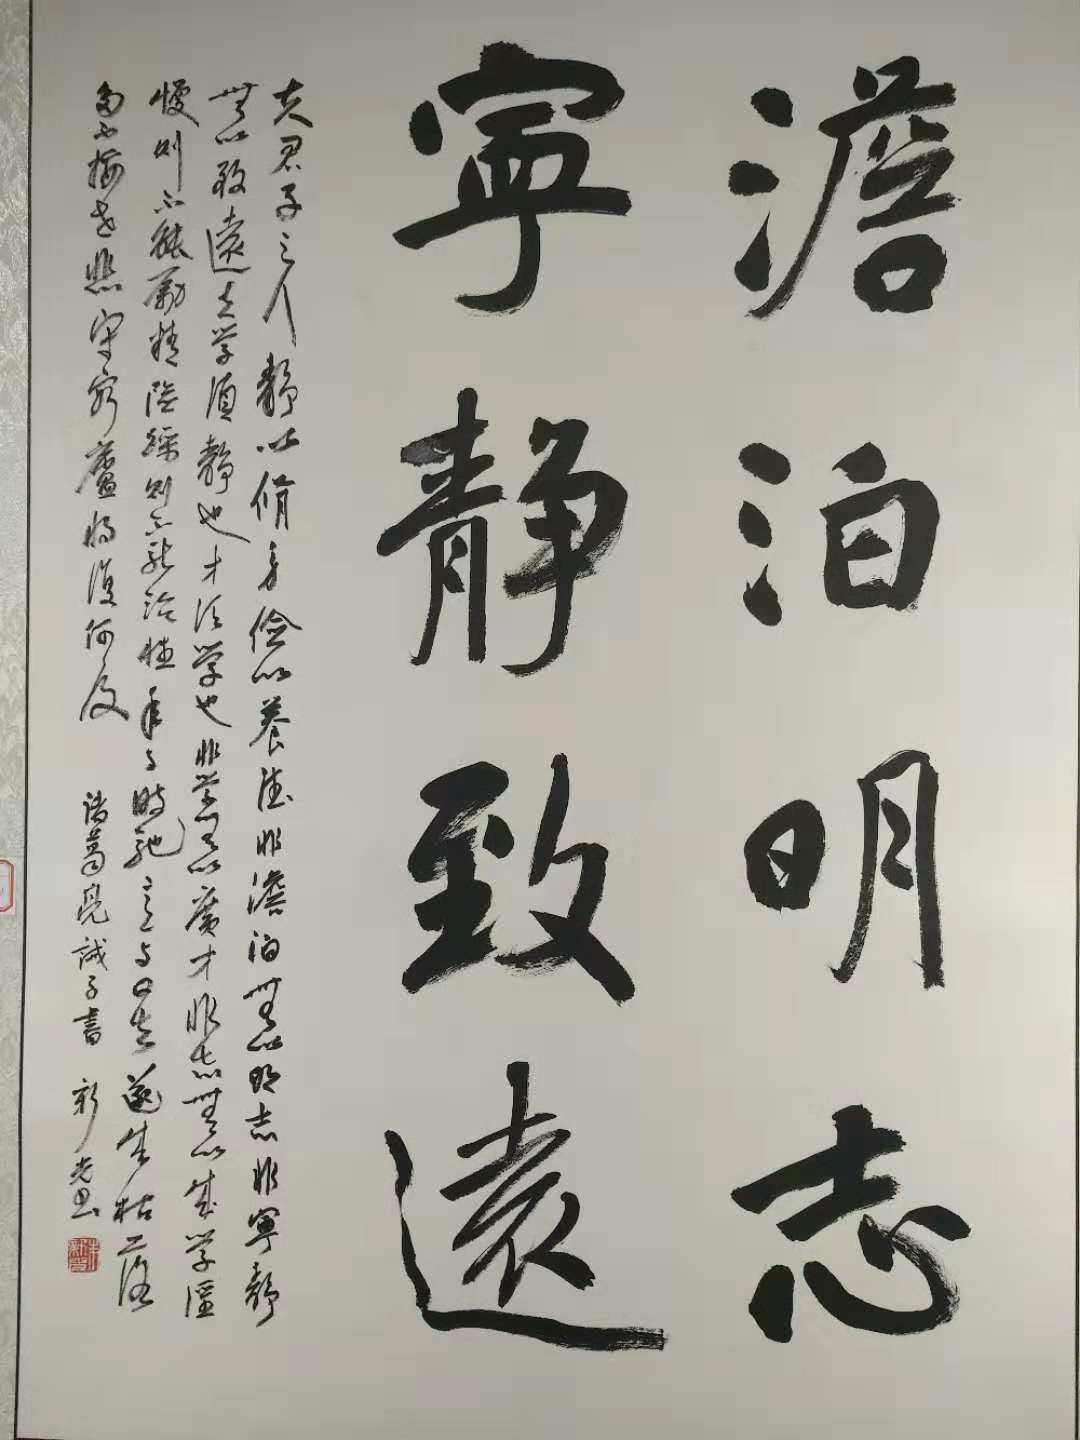 澹泊明志
寧静致遠
夫君子之行静以脩身儉以養德非澹泊無以明志非寧静
無以致遠夫学須静也才須学也非学無以廣才非志無以成学淫
慢则不能勵精險躁则不能治性年与時馳意与日去遂成枯落
多不接世悲守窮廬將復何及 諸葛亮誡子書 新光书